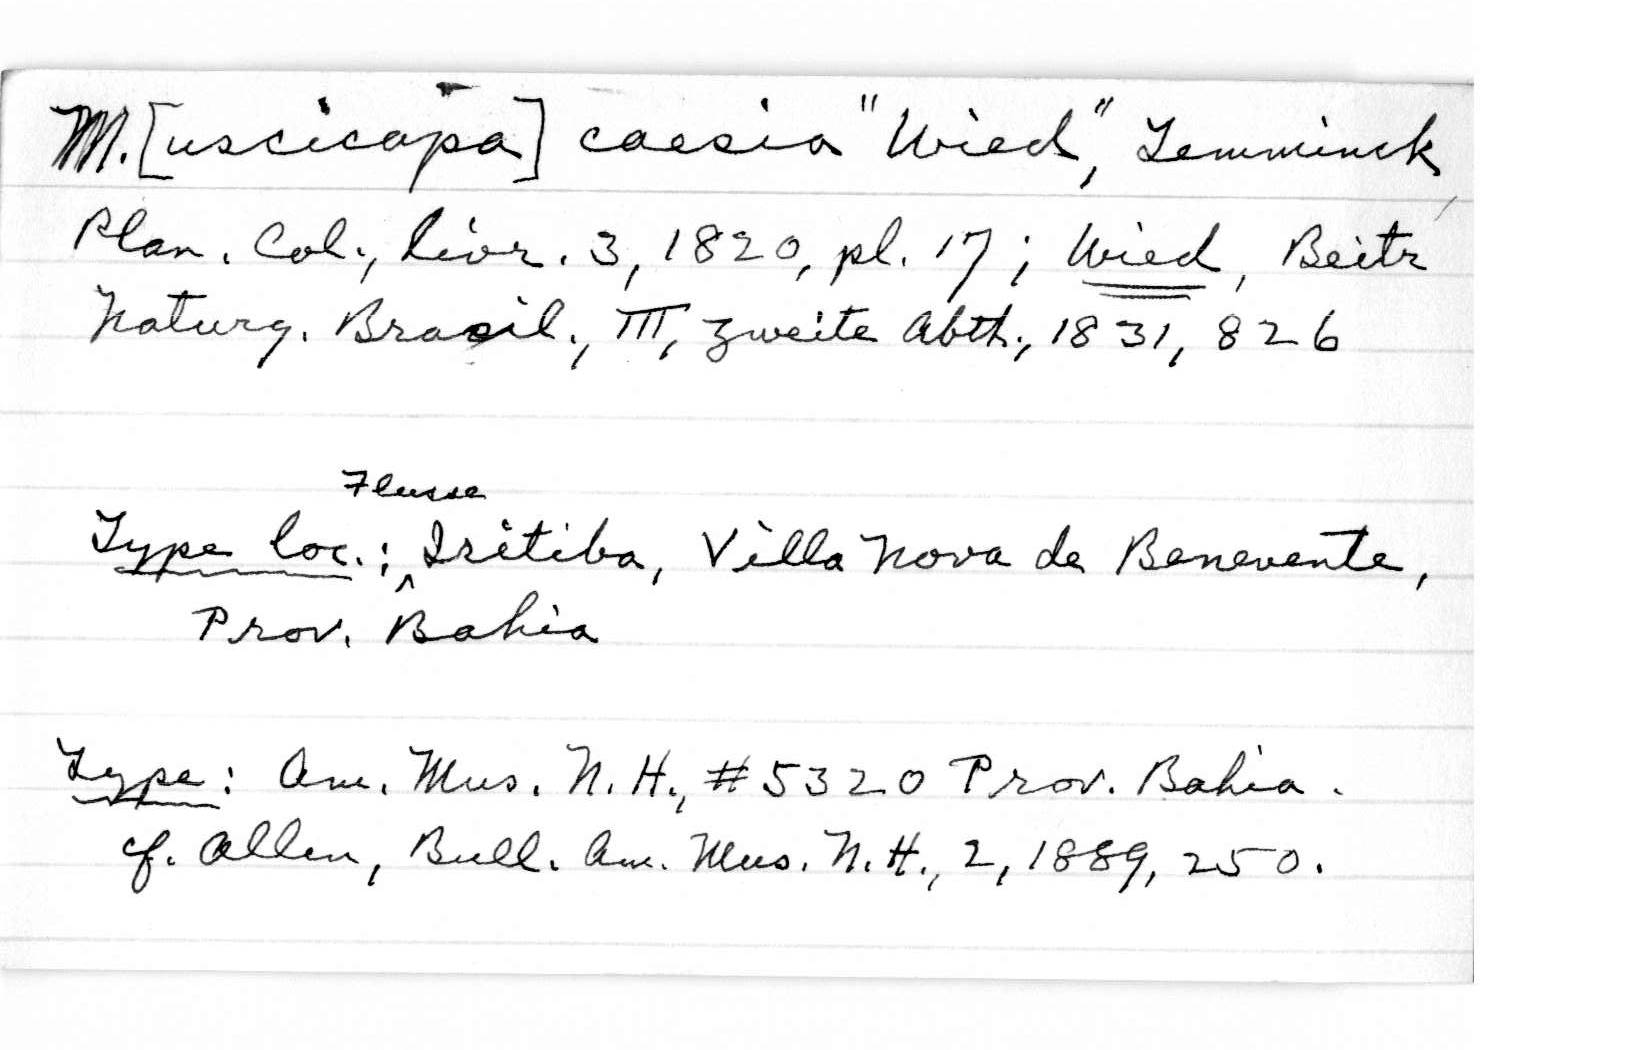 M.[uscicapa] caesia "Wied", Temminck,
Plan. Col., livr. 3, 1820, pl. 17; Wied, Beitr
Naturg. Brasil., III, zweite Abth., 1831, 826
Flusse
Type loc.: Iritiba, Villa Nova de Benevente,
Prov. Bahia
Type: Am. Mus. N. H., #5320 Prov. Bahia.
cf. Allen, Bull. Am. Mus. N. H., 2, 1889, 250.